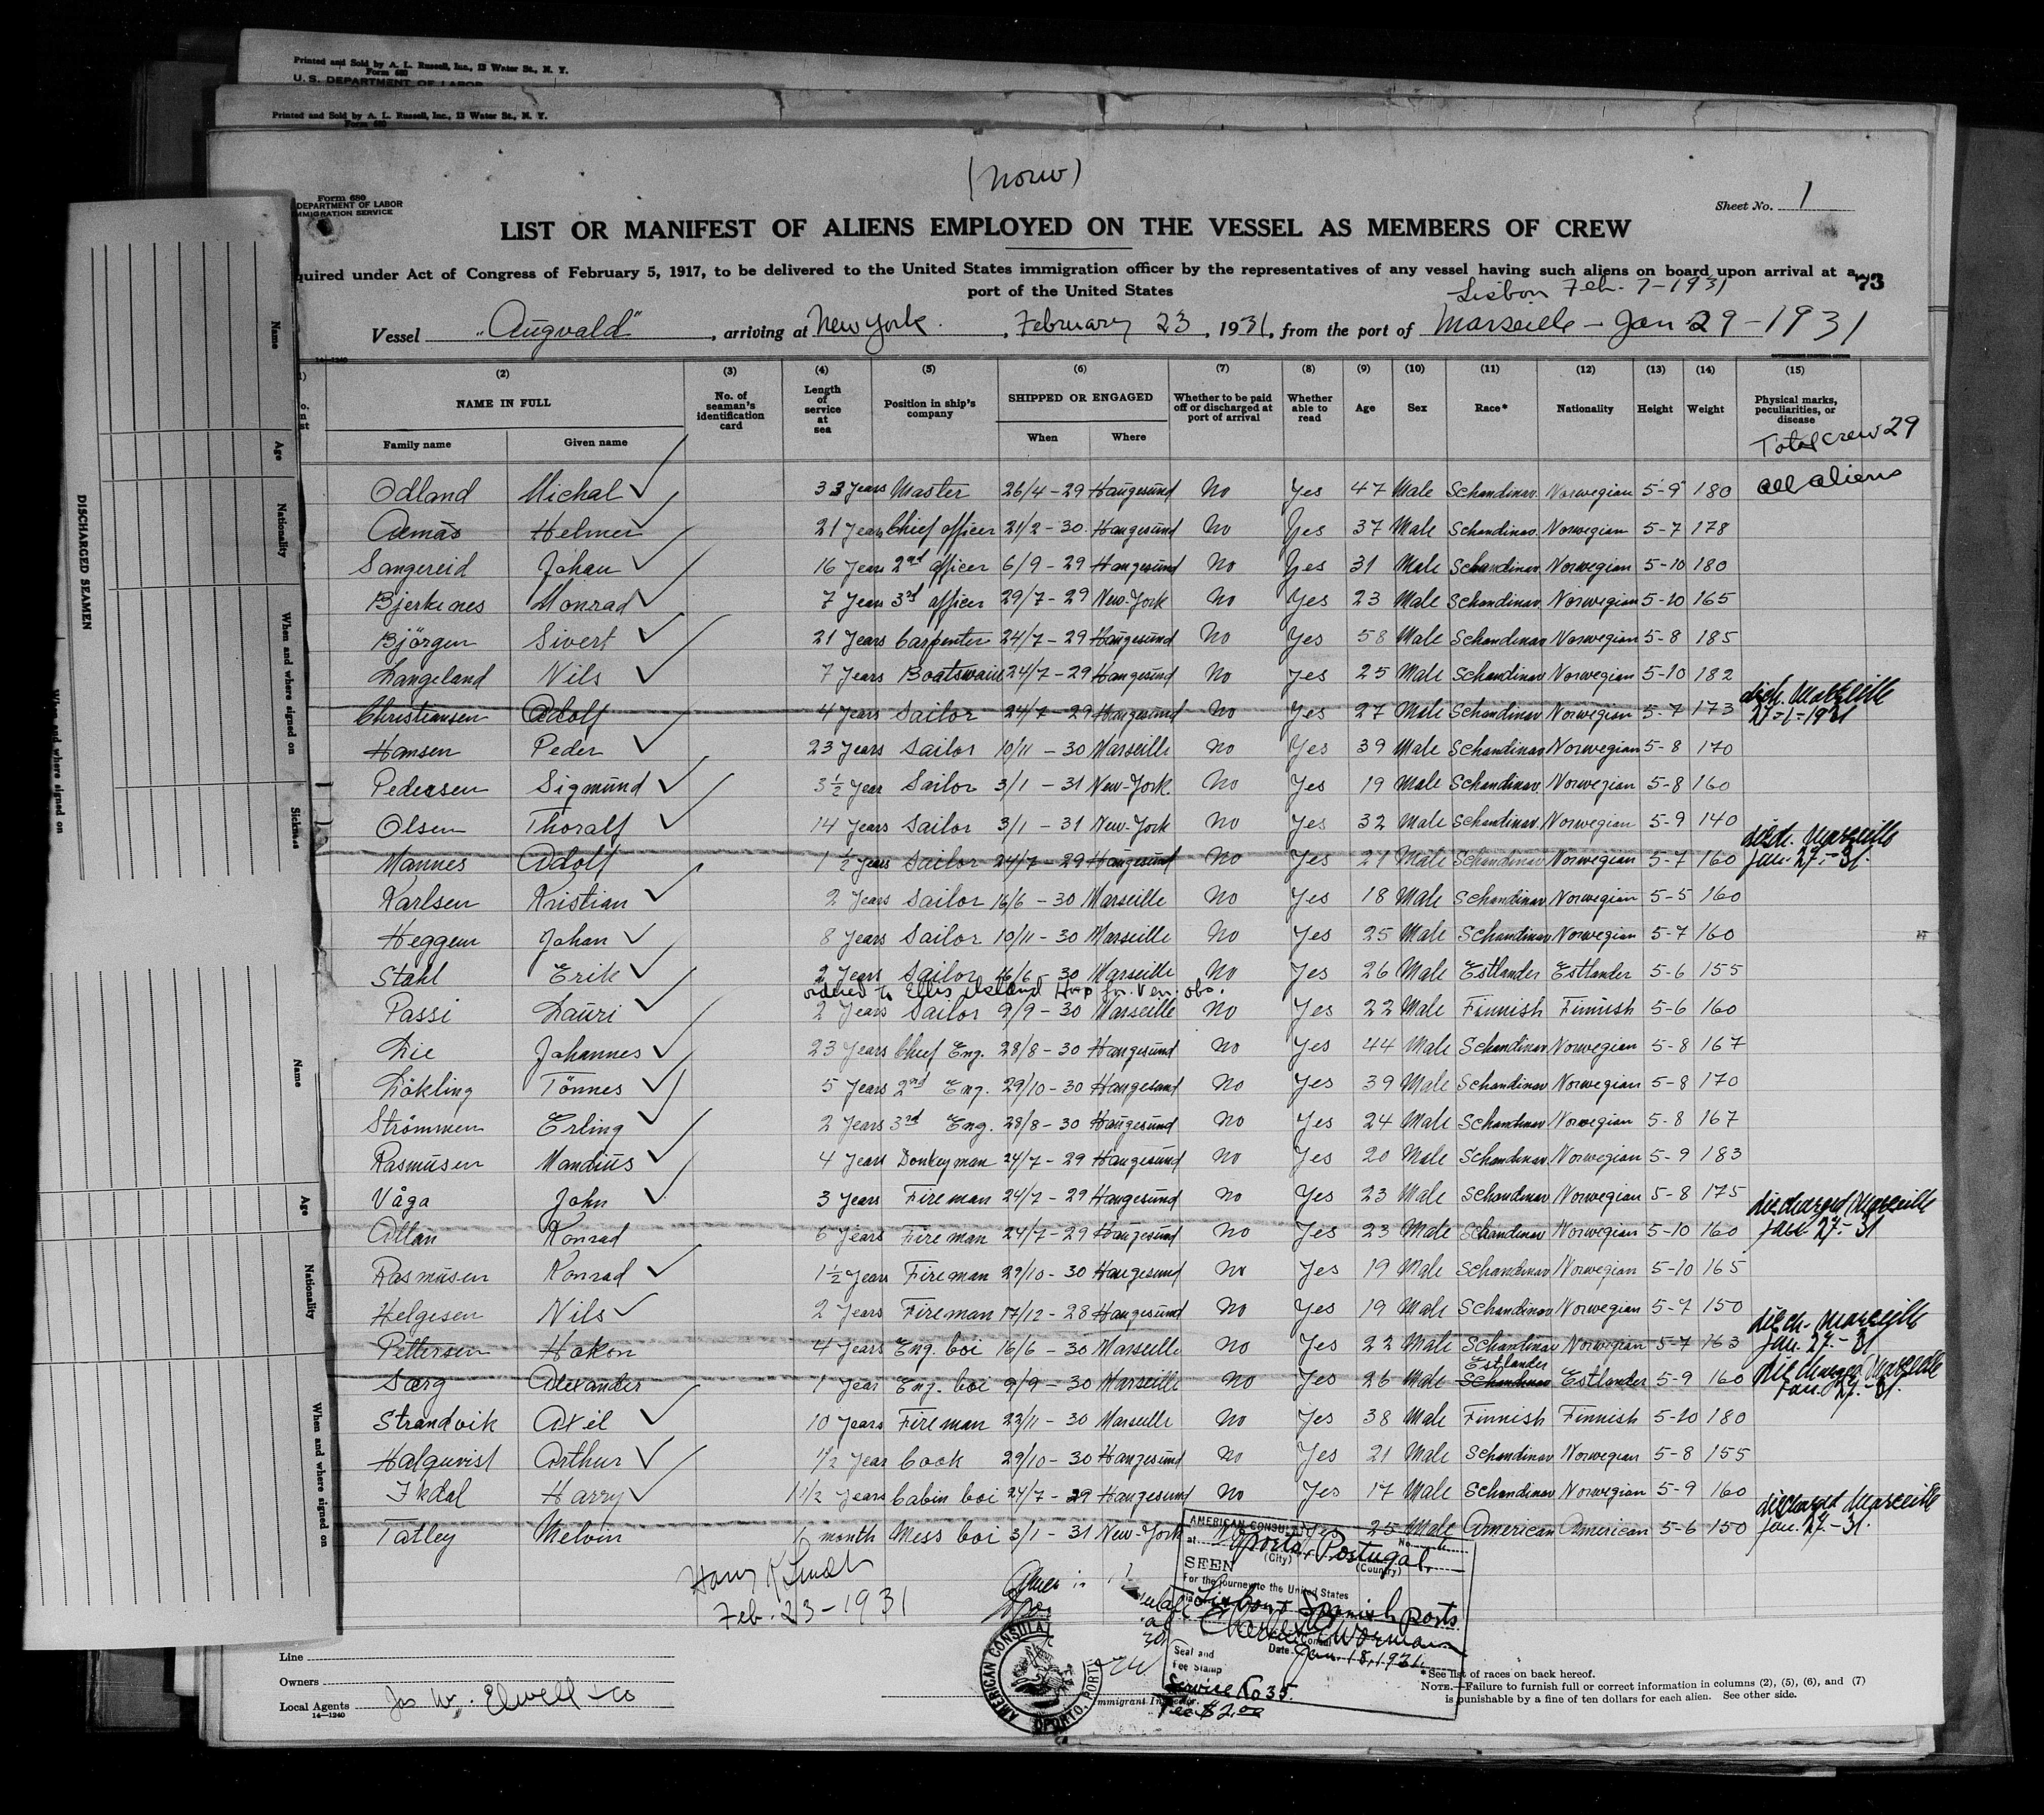 Printed and Sold by A. L. Russell, Inc., 13 Water St., N. Y.
Form 680
U. S. DEPARTMENT OF LABOR
Printed and Sold by A. L. Russell, Inc., 13 Water St., N. Y.
Form 680
(Norw)
Form 680
DEPARTMENT OF LABOR
IMMIGRATION SERVICE
Sheet No. 1
LIST OR MANIFEST OF ALIENS EMPLOYED ON THE VESSEL AS MEMBERS OF CREW
quired under Act of Congress of February 5, 1917, to be delivered to the United States immigration officer by the representatives of any vessel having such aliens on board upon arrival at a
port of the United States
73
Lisbon Feb. 7-1931
Vessel "Augvald", arriving at New York, February 23, 1931, from the port of Marseille - Jan 29-1931
14-1240
(2) (3) (4) (5) (6) (7) (8) (9) (10) (11) (12) (13) (14) (15)
NAME IN FULL
Family name Given name
No. of seaman's identification card
Length of service at sea
Position in ship's company
SHIPPED OR ENGAGED
When Where
Whether to be paid off or discharged at port of arrival
Whether able to read
Age Sex Race* Nationality Height Weight
Physical marks, peculiarities, or disease
Total crew 29
all aliens
Odland Michal 33 years Master 26/4-29 Haugesund No Yes 47 Male Schandinav. Norwegian 5-9 180
Aamås Helmer 21 years Chief officer 21/2-30 Haugesund No Yes 37 Male Schandinav. Norwegian 5-7 178
Sangereid Johan 16 Years 2nd officer 6/9-29 Haugesund No Yes 31 Male Schandinav. Norwegian 5-10 180
Bjerkenes Monrad 7 Years 3rd officer 29/7-29 New-York No Yes 23 Male Schandinav Norwegian 5-10 165
Björgen Sivert 21 Years Carpenter 24/7-29 Haugesund No Yes 58 Male Schandinav Norwegian 5-8 185
Langeland Nils 7 Years Boatswain 24/7-29 Haugesund No Yes 25 Male Schandinav Norwegian 5-10 182
Christiansen Adolf 4 Years Sailor 24/7-29 Haugesund No Yes 27 Male Schandinav Norwegian 5-7 173 disch. Marseille 27-1-1931
Hansen Peder 23 Years Sailor 10/11-30 Marseille No Yes 39 Male Schandinav Norwegian 5-8 170
Pedersen Sigmund 3½ Year Sailor 3/1-31 New-York No Yes 19 Male Schandinav Norwegian 5-8 160
Olsen Thoralf 14 Years Sailor 3/1-31 New-York No Yes 32 Male Schandinav. Norwegian 5-9 140
Mannes Adolf 1½ Years Sailor 24/7-29 Haugesund No Yes 21 Male Schandinav Norwegian 5-7 160 disch. Marseille Jan. 27.-31.
Karlsen Kristian 2 Years Sailor 16/6-30 Marseille No Yes 18 Male Schandinav Norwegian 5-5 160
Heggem Johan 8 Years Sailor 10/11-30 Marseille No Yes 25 Male Schandinav Norwegian 5-7 160
Stahl Erik 2 Years Sailor 16/6-30 Marseille No Yes 26 Male Estlander Estlander 5-6 155
ordered to Ellis Island Hosp for Ven. obs.
Passi Lauri 2 Years Sailor 9/9-30 Marseille No Yes 22 Male Finnish Finnish 5-6 160
Lie Johannes 23 Years Chief Eng. 28/8-30 Haugesund No Yes 44 Male Schandinav Norwegian 5-8 167
Lökling Tönnes 5 Years 2nd Eng. 29/10-30 Haugesund No Yes 39 Male Schandinav Norwegian 5-8 170
Strömmen Erling 2 Years 3rd Eng. 28/8-30 Haugesund No Yes 24 Male Schandinav Norwegian 5-8 167
Rasmusen Mandius 4 Years Donkeyman 24/7-29 Haugesund No Yes 20 Male Schandinav Norwegian 5-9 183
Våga John 3 Years Fireman 24/7-29 Haugesund No Yes 23 Male Schandinav Norwegian 5-8 175
Konrad 6 Years Fireman 24/7-29 Haugesund No Yes 23 Male Schandinav Norwegian 5-10 160 discharged Marseille Jan 27.-31
Rasmusen Konrad 1½ Years Fireman 29/10-30 Haugesund No Yes 19 Male Schandinav Norwegian 5-10 165
Helgesen Nils 2 Years Fireman 17/12-28 Haugesund No Yes 19 Male Schandinav Norwegian 5-7 150
Pettersen Hakon 4 Years Eng. boi 16/6-30 Marseille No Yes 22 Male Schandinav Norwegian 5-7 163 disch. Marseille Jan. 27.-31
Særg Alexander 1 Year Eng. boi 9/9-30 Marseille No Yes 26 Male Schandinav Estlander Estlander 5-9 160 discharged Marseille Jan. 27.-31.
Strandvik Axel 10 Years Fireman 22/11-30 Marseille No Yes 38 Male Finnish Finnish 5-10 180
Halquvist Arthur 1/2 Year Cook 29/10-30 Haugesund No Yes 21 Male Schandinav Norwegian 5-8 155
Ikdal Harry 1 1/2 Years Cabin boi 24/7-29 Haugesund No Yes 17 Male Schandinav Norwegian 5-9 160
Tatley Melvin month Mess boi 3/1-31 New-York Yes 25 Male American American 5-6 150 discharged Marseille Jan. 27.-31.
Feb. 23-1931
AMERICAN CONSULATE
at Oporto, Portugal.
(City) (Country)
SEEN
For the journey to the United States
via Lisbon & Spanish ports
Date Jan. 18, 1931
Seal and
Fee Stamp
Service No 35.
Fee $2.00
AMERICAN CONSULATE OPORTO, PORT
Immigrant Inspector.
Line
Owners
Local Agents Jas W. Elwell & Co
14-1240
*See list of races on back hereof.
NOTE.—Failure to furnish full or correct information in columns (2), (5), (6), and (7)
is punishable by a fine of ten dollars for each alien. See other side.
DISCHARGED SEAMEN
Name
Age
Nationality
When and where signed on
Sickness
When and where signed on
Name
Age
Nationality
When and where signed on